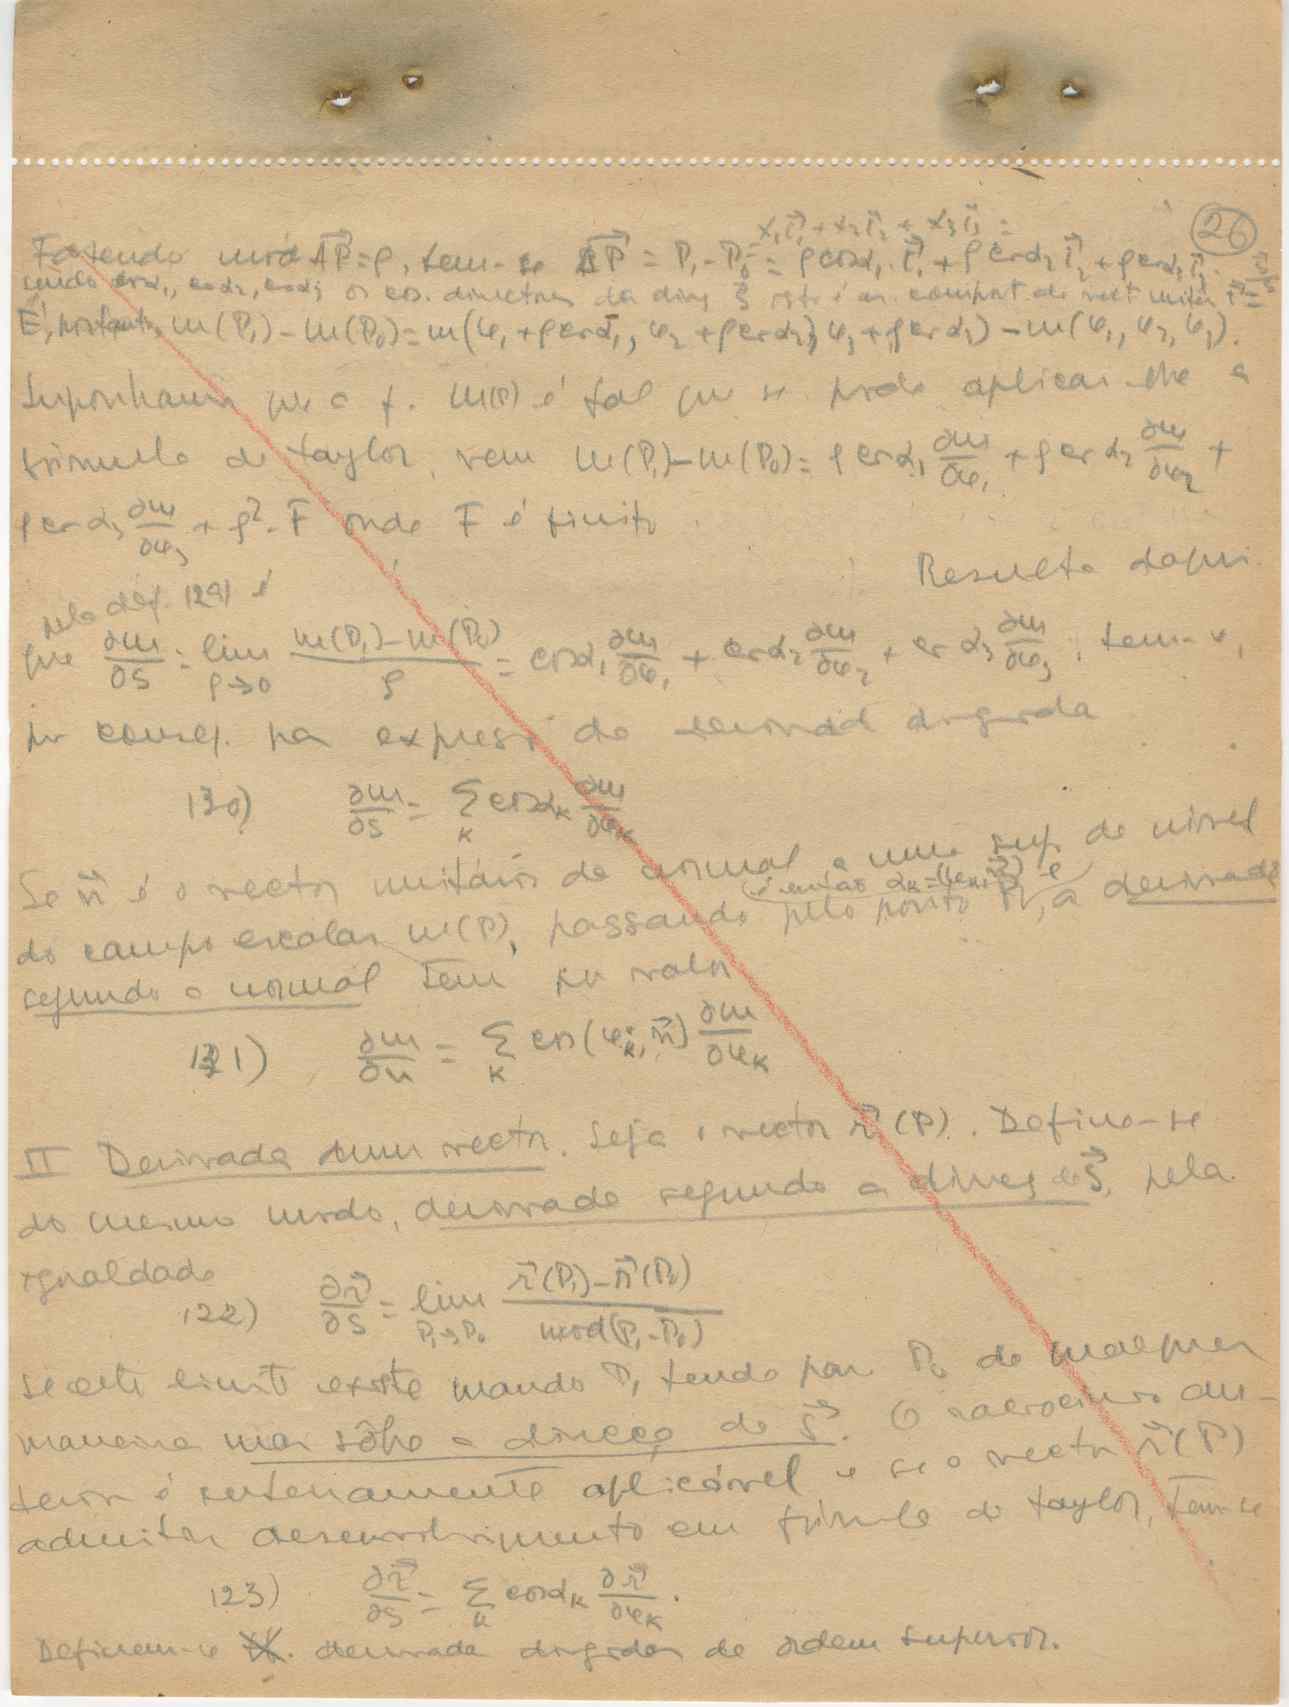 26
x₁r⃗₁ + x₂r⃗₂ + x₃r⃗₃ =
Fazendo mod ΔP⃗ = ρ, tem-se ΔP⃗ = P₁ - P₀ = ρ cosα₁ r⃗₁ + ρ cosα₂ r⃗₂ + ρ cosα₃ r⃗₃
sendo cosα₁, cosα₂, cosα₃ os cos. directores da direç s⃗ isto é as comport. do vect unitár
É, portanto, m(P₁) - m(P₀) = m(φ₁ + ρ cosα₁, φ₂ + ρ cosα₂, φ₃ + ρ cosα₃) - m(φ₁, φ₂, φ₃).
Suponhamos que a f. m(P) é tal que se pode aplicar-lhe a
fórmula de Taylor, vem m(P₁) - m(P₀) = ρ cosα₁ ∂m/∂φ₁ + ρ cosα₂ ∂m/∂φ₂ +
ρ cosα₃ ∂m/∂φ₃ + ρ². F onde F é finito
Resulta daqui
pela def. 129) é
que ∂m/∂s = lim ρ→0 (m(P₁) - m(P₀))/ρ = cosα₁ ∂m/∂φ₁ + cosα₂ ∂m/∂φ₂ + cosα₃ ∂m/∂φ₃, tem-se,
por conseq. na express da derivad dirigida
130) ∂m/∂s = Σ_k cosα_k ∂m/∂φ_k
Se n⃗ é o vector unitário da normal a uma sup. de nível
(é então α_k = (φ_k, n⃗) e
do campo escalar m(P), passando pelo ponto P₀, a derivada
segundo a normal tem por valor
121) ∂m/∂n = Σ_k cos(φ_k, n⃗) ∂m/∂φ_k
II Derivada dum vector. Seja o vector r⃗(P). Define-se
do mesmo modo, derivada segundo a direç de s⃗, pela
igualdade
122) ∂r⃗/∂s = lim P₁→P₀ (r⃗(P₁) - r⃗(P₀))/mod(P₁ - P₀)
se este limite existe quando P₁ tende para P₀ de qualquer
maneira mas sôbre a direcção de s⃗. O raciocínio an-
terior é inteiramente aplicável e se o vector r⃗(P)
admitir desenvolvimento em fórmula de Taylor, tem-se
123) ∂r⃗/∂s = Σ_k cosα_k ∂r⃗/∂φ_k.
Definem-se derivadas dirigidas de ordem superior.